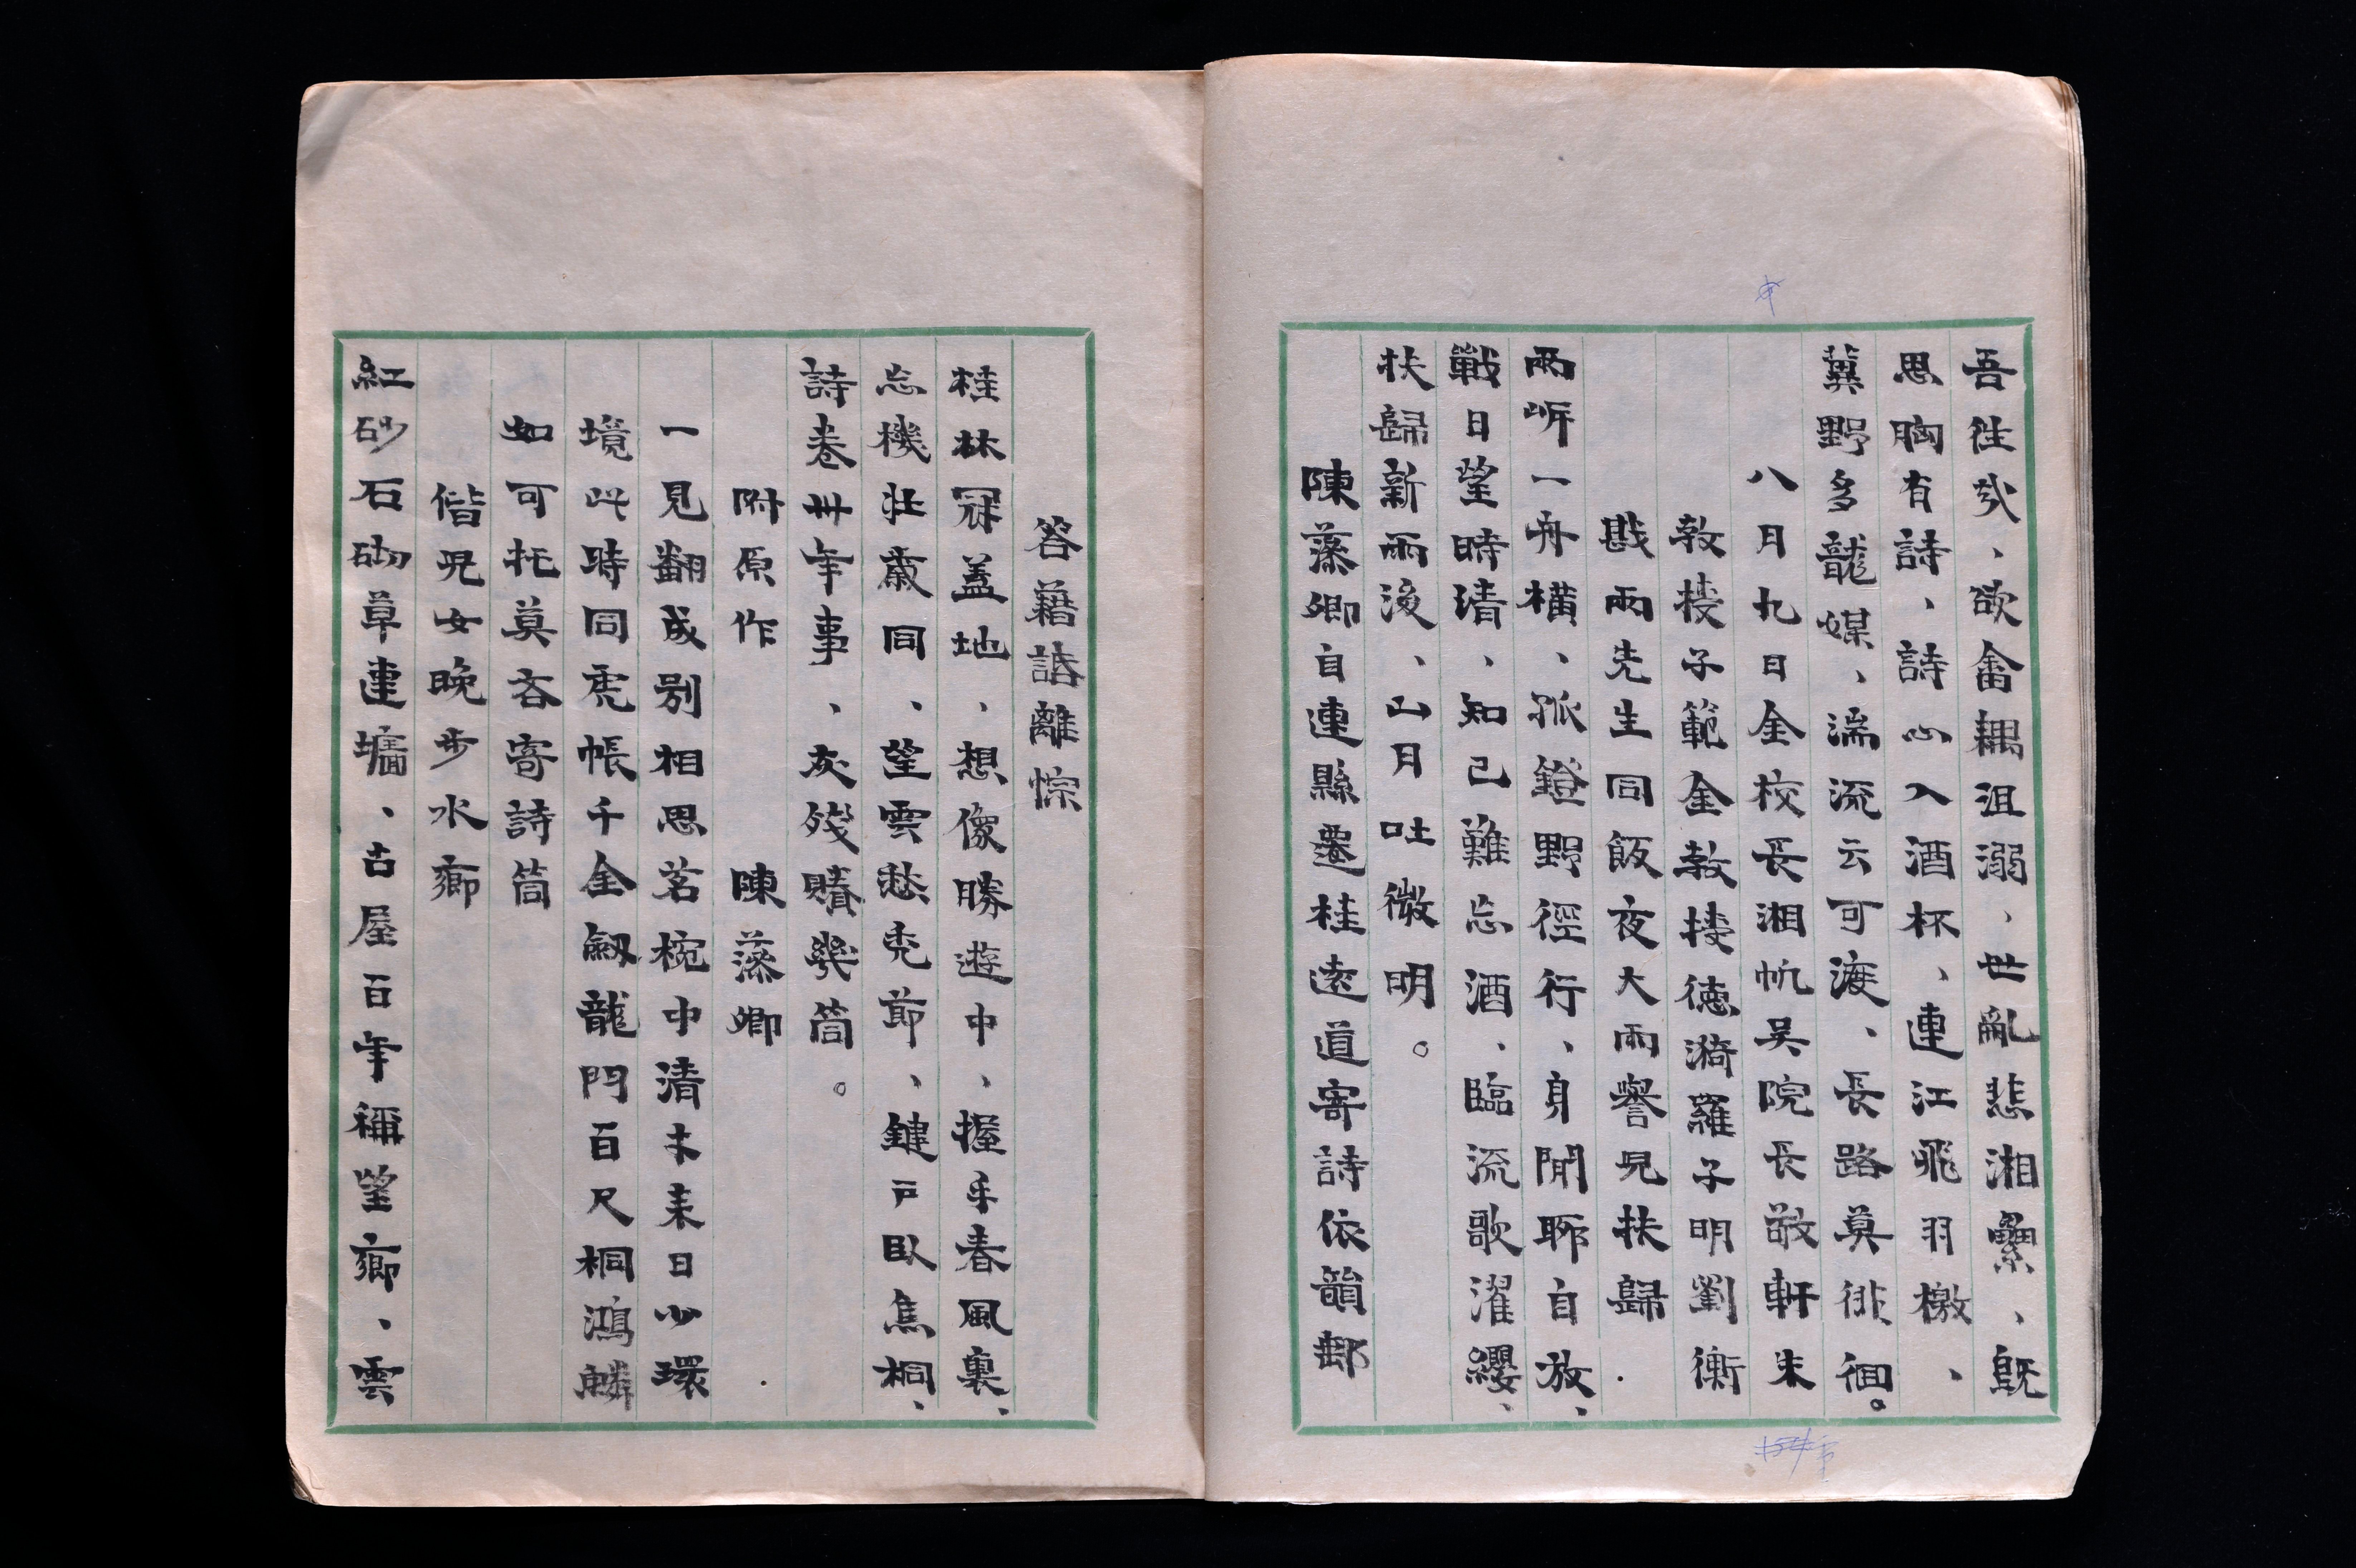 吾往矣、欲畬耦沮溺、世亂悲湘纍、既
思胸有詩、詩心入酒杯、連江飛羽檄、
冀野多龍媒、湍流云可渡、長路莫徘徊。
八月九日金校長湘帆吴院長敬軒朱
教授子範金教授德漪羅子明劉衡
戡兩先生同飯夜大雨譽兒扶歸
兩岍一舟橫、孤鐙野徑行、身閒聊自放、
戰日望時清、知己難忘酒、臨流歌濯纓、
扶歸新雨後、山月吐微明。
陳藻卿自連縣遷桂遠道寄詩依韻郵
答藉話離悰
桂林冠蓋地、想像勝遊中、握手春風裏、
忘機壯歲同、望雲愁禿節、鍵戶臥焦桐、
詩卷卅年事、灰殘賸幾筒。
附原作 陳藻卿
一見翻成别相思茗椀中清未來日少環
境此時同虎帳千金劒龍門百尺桐鴻鱗
如可托莫吝寄詩筒
偕兒女晚步水鄉
紅砂石砌草連墻、古屋百年稱望鄉、雲